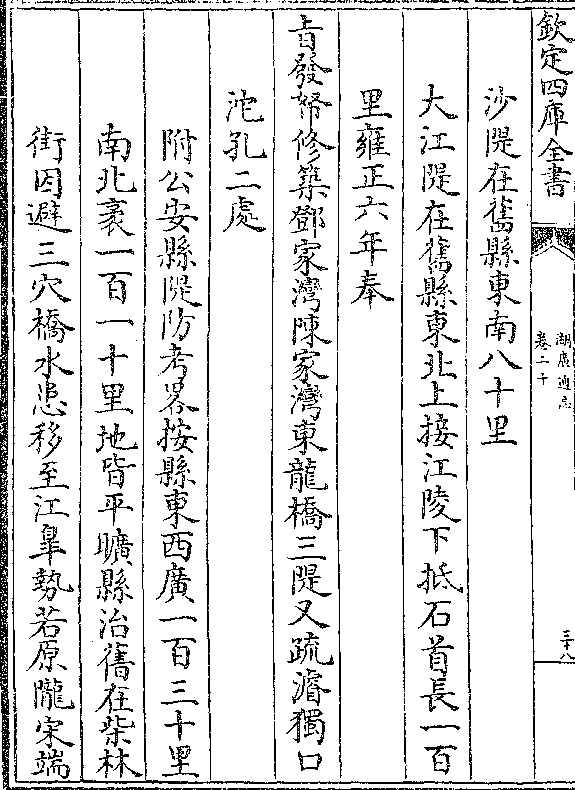 欽定四庫全書
湖廣通志
卷二十
三十八
沙隄在舊縣東南八十里
大江隄在舊縣東北上接江陵下抵石首長一百
里雍正六年奉
㫖發帑修築鄧家灣陳家灣東龍橋三隄又疏濬獨口
沱孔二處
附公安縣隄防考畧按縣東西廣一百三十里
南北袤一百一十里地皆平曠縣治舊在柴林
街因避三穴橋水患移至江臯勢若原隴宋端